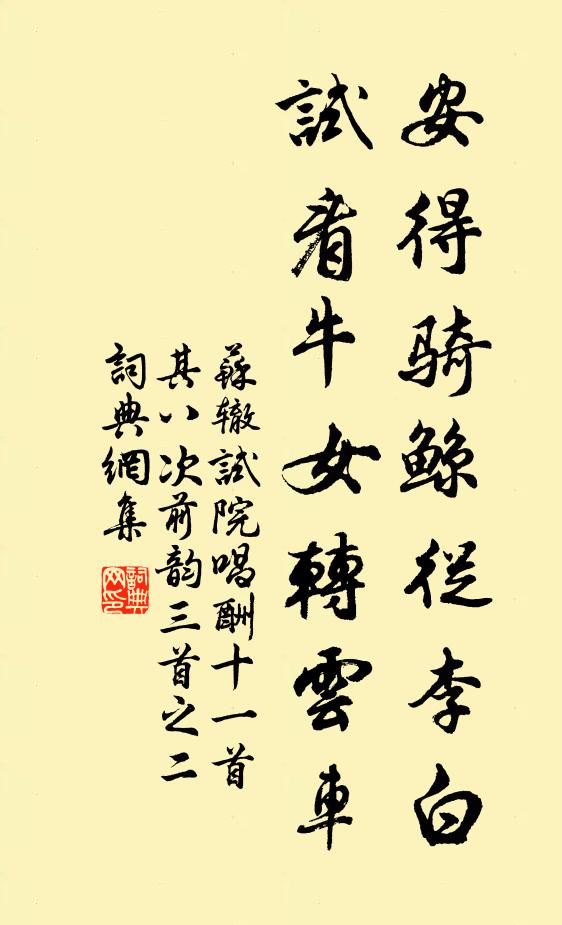 安得騎鯨從李白
試看牛女轉雲車
蘇辙試院唱酬十一首
其八次前韵三首之二
詞典網集
詞典网印